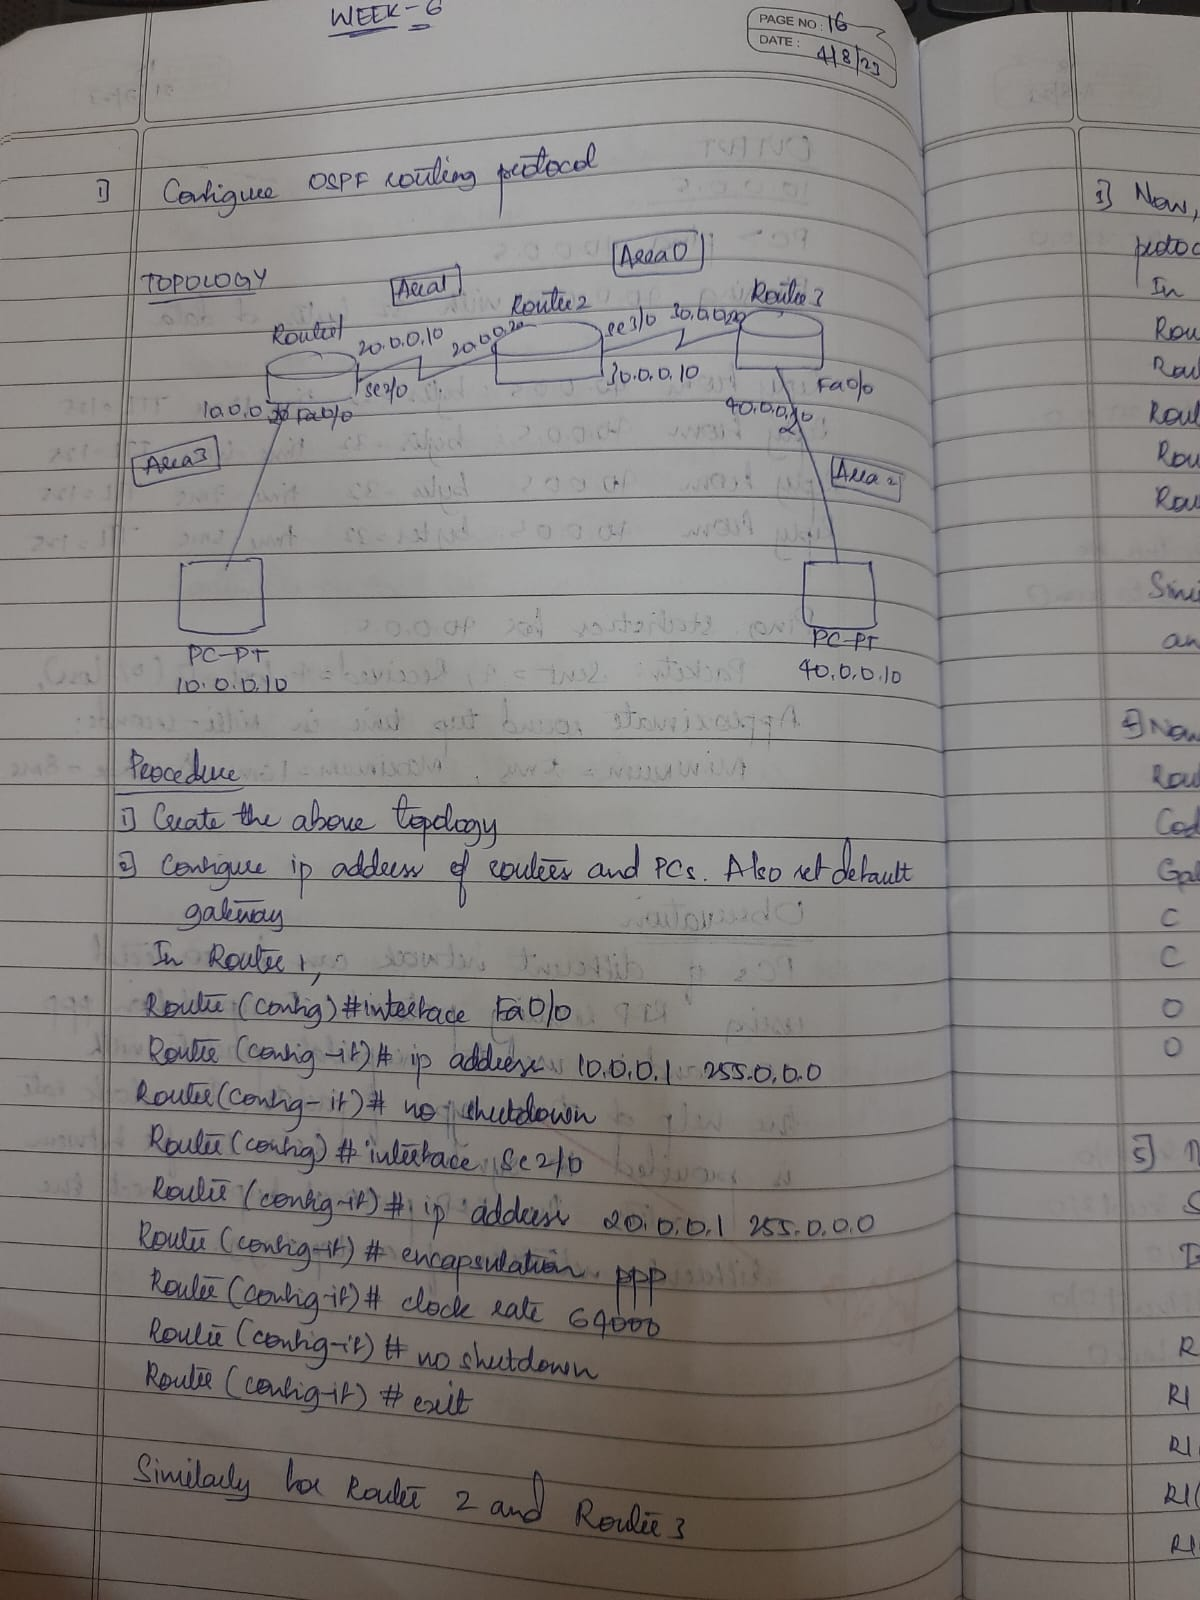 WEEK-6
PAGE NO: 16
DATE: 4/8/23
1] Configure OSPF routing protocol
TOPOLOGY
Area 1
Area 0
Router1
20.0.0.10
20.0.0.20
Router 2
se3/0
30.0.0.20
Router 3
se2/0
30.0.0.10
Fa0/0
10.0.0
Fa0/0
40.0.0.
Area 3
Area 2
PC-PT
10.0.0.10
PC-PT
40.0.0.10
Procedure
1] Create the above topology
2] Configure ip address of routers and PCs. Also set default
gateway
In Router 1,
Router (config) #interface Fa0/0
Router (config-if)# ip address 10.0.0.1 255.0.0.0
Router(config-if)# no shutdown
Router (config) # interface se2/0
Router (config-if)# ip address 20.0.0.1 255.0.0.0
Router (config-if) # encapsulation ppp
Router (config-if)# clock rate 64000
Router (config-if) # no shutdown
Router (config-if) # exit
Similarly for Router 2 and Router 3
3] Now,
In
4] Now
5]